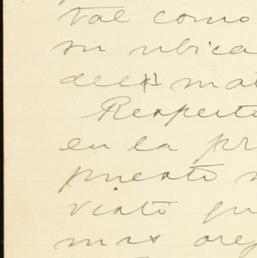 tal como
su ubica
del mat
Respecto
en la pr
puesto
visto qu
mas